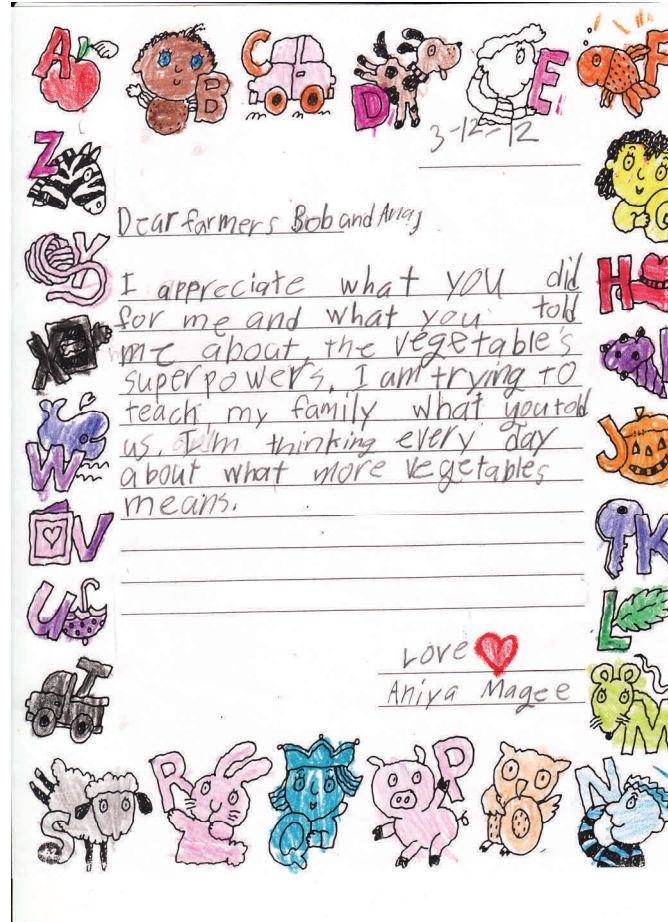 A B C D E F
3-12-12
Z
Dear farmers Bob and
G
Y
I appreciate what YOU did
H
for me and what you told
X
me about the vegetable's
I
superpowers. I am trying to
teach my family what you told
J
W
us. I'm thinking every day
about what more vegetables
means.
V
K
U
L
Love
T
Aniya Magee
M
S R Q P O N